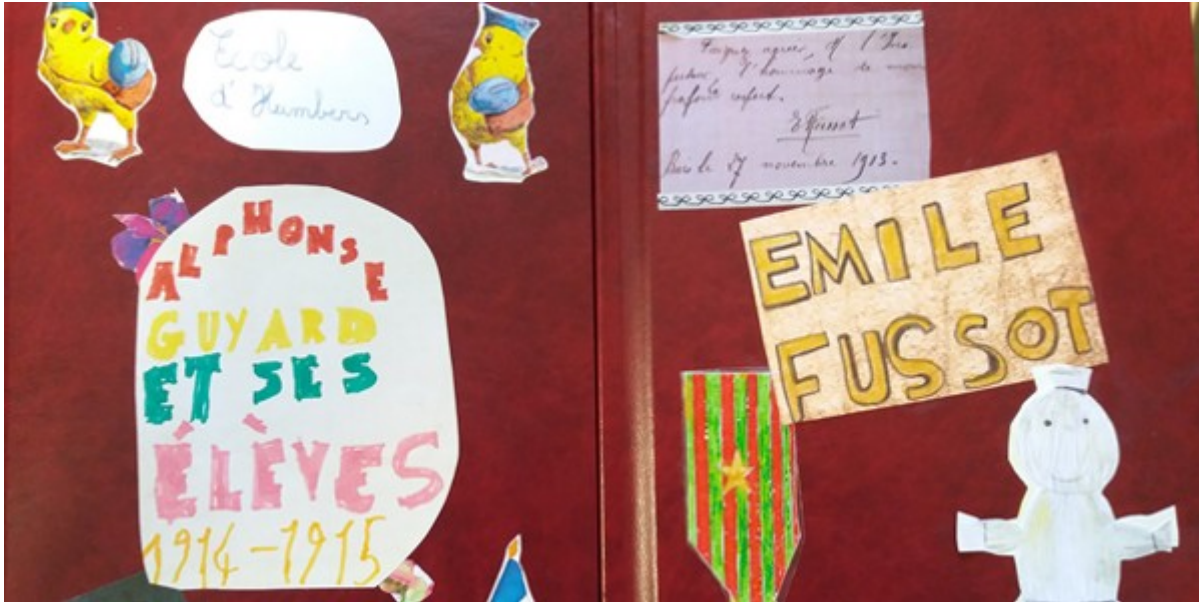 Ecole
d'Humbers
ALPHONSE
GUYARD
ET SES
ÉLÈVES
1914-1915
agréer, M l'Ins
pecteur, l'hommage de mon
profond respect.
EFussot
Bais le 27 novembre 1913.
EMILE
FUSSOT